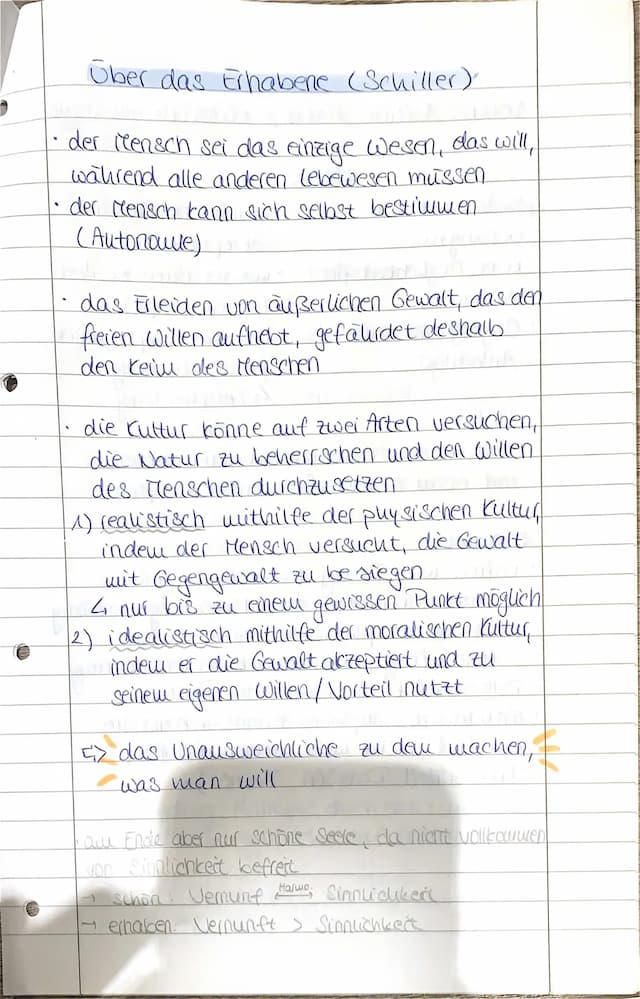 Über das Erhabene (Schiller)
· der Mensch sei das einzige Wesen, das will,
während alle anderen Lebewesen müssen
· der Mensch kann sich selbst bestimmen
(Autonomie)
· das Erleiden von äußerlichen Gewalt, das den
freien Willen aufhebt, gefährdet deshalb
den Keim des Menschen
· die Kultur könne auf zwei Arten versuchen,
die Natur zu beherrschen und den Willen
des Menschen durchzusetzen
1) realistisch mithilfe der physischen Kultur,
indem der Mensch versucht, die Gewalt
mit Gegengewalt zu besiegen
↳ nur bis zu einem gewissen Punkt möglich
2) idealistisch mithilfe der moralischen Kultur,
indem er die Gewalt akzeptiert und zu
seinem eigenen Willen/Vorteil nutzt
⇨ das Unausweichliche zu dem machen,
was man will
· am Ende aber nur schöne Seele, da nicht vollkommen
von Sinnlichkeit befreit
→ schön: Vernunft Sinnlichkeit
→ erhaben: Vernunft > Sinnlichkeit